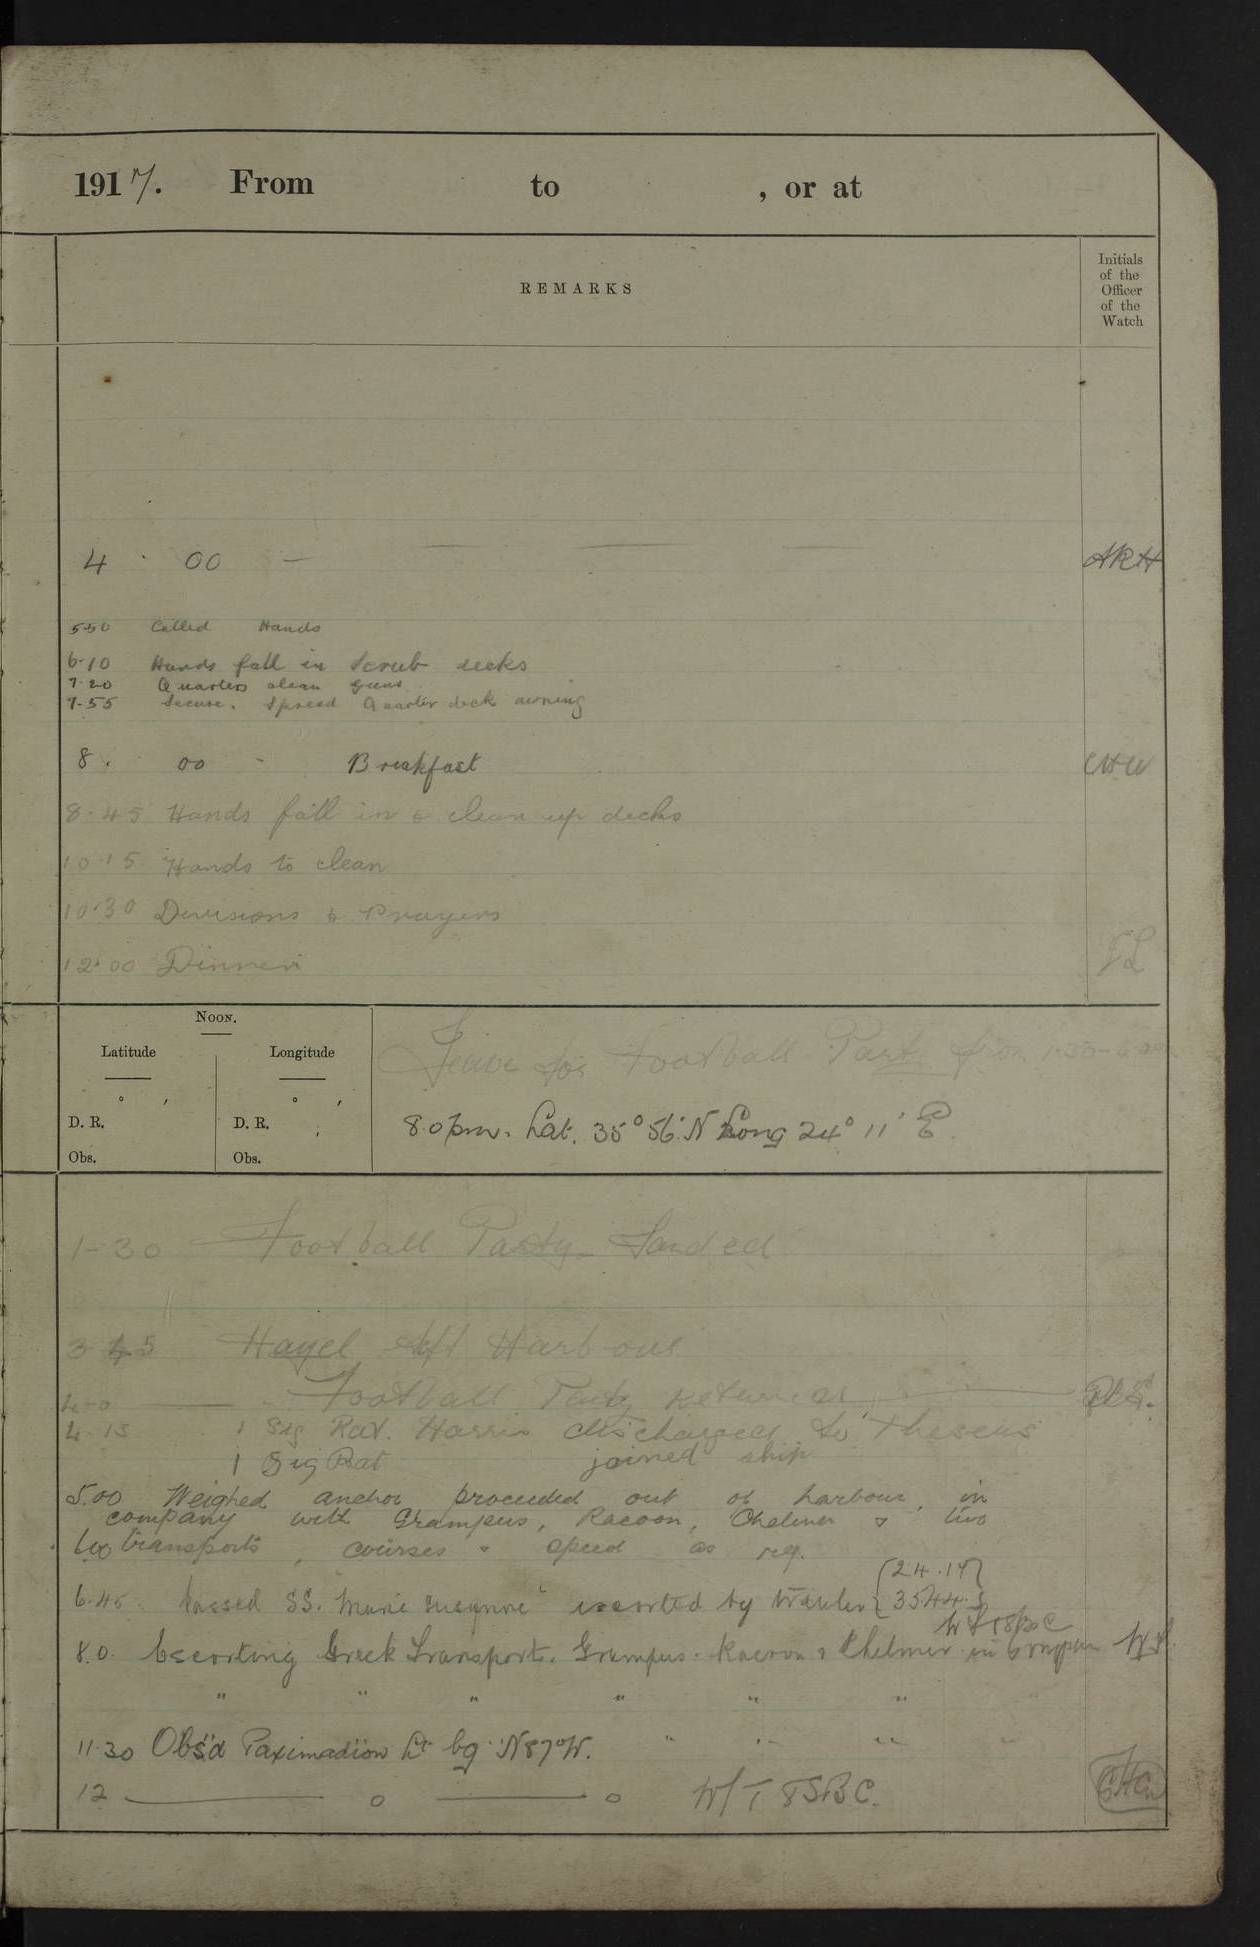 1917. From to , or at
REMARKS
Initials
of the
Officer
of the
Watch
4 . 00 — ARH
5-30 Called Hands
6-10 Hands fall in Scrub decks
7-20 Quarters clean guns
7-55 Secure. Spread Quarter deck awning
8. 00 - Breakfast
8-45 Hands fall in & clean up decks
10-15 Hands to clean
10-30 Divisions & Prayers
12.00 Dinner
NOON.
Latitude Longitude
° ′ ° ′
D. R. D. R.
Obs. Obs.
Leave for Football Party from 1-30-6
8.0 pm. Lat. 35° 56' N Long 24° 11' E.
1-30 Football Party Landed
3 45 Left Harbour
4-0 Football Party returned
4-15 1 Sig Rat. Harris discharged to Theseus
1 Sig Rat joined ship
5.00 Weighed anchor proceeded out of harbour, in
company with Grampus, Racoon, Chelmer & two
transports, courses & speed as req.
6-45 Passed SS. "Marie Susanne" escorted by trawler {24.14
3544.
W/T 8SBC
8.0. Escorting Greek Transports. Grampus. Racoon & Chelmer in Company
" " " " " "
11.30 Obs'd Paximadion Lt bg N87°W. " " " "
12 — o — o W/T 8SBC.